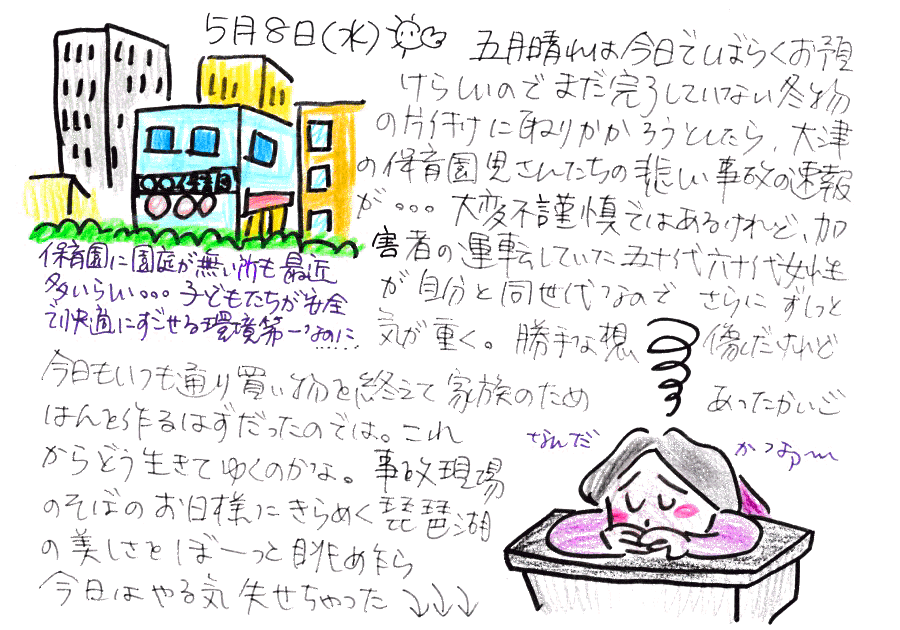 5月8日(水)
五月晴れは今日でしばらくお預
けらしいのでまだ完了していない冬物
の片付けに取りかかろうとしたら、大津
の保育園児さんたちの悲しい事故の速報
が。。。大変不謹慎ではあるけれど、加
害者の運転していた五十代六十代女性
が自分と同世代なのでさらにずしっと
気が重く。勝手な想像だけれど
今日もいつも通り買い物を終えて家族のためあったかいご
はんを作るはずだったのでは。これ
からどう生きてゆくのかな。事故現場
のそばのお日様にきらめく琵琶湖
の美しさをぼーっと眺めたら
今日はやる気失せちゃった↓↓↓
○○保育園
保育園に園庭が無い所も最近
多いらしい。。。子どもたちが安全
で快適にすごせる環境第一なのに......
なんだ
かなぁ〜